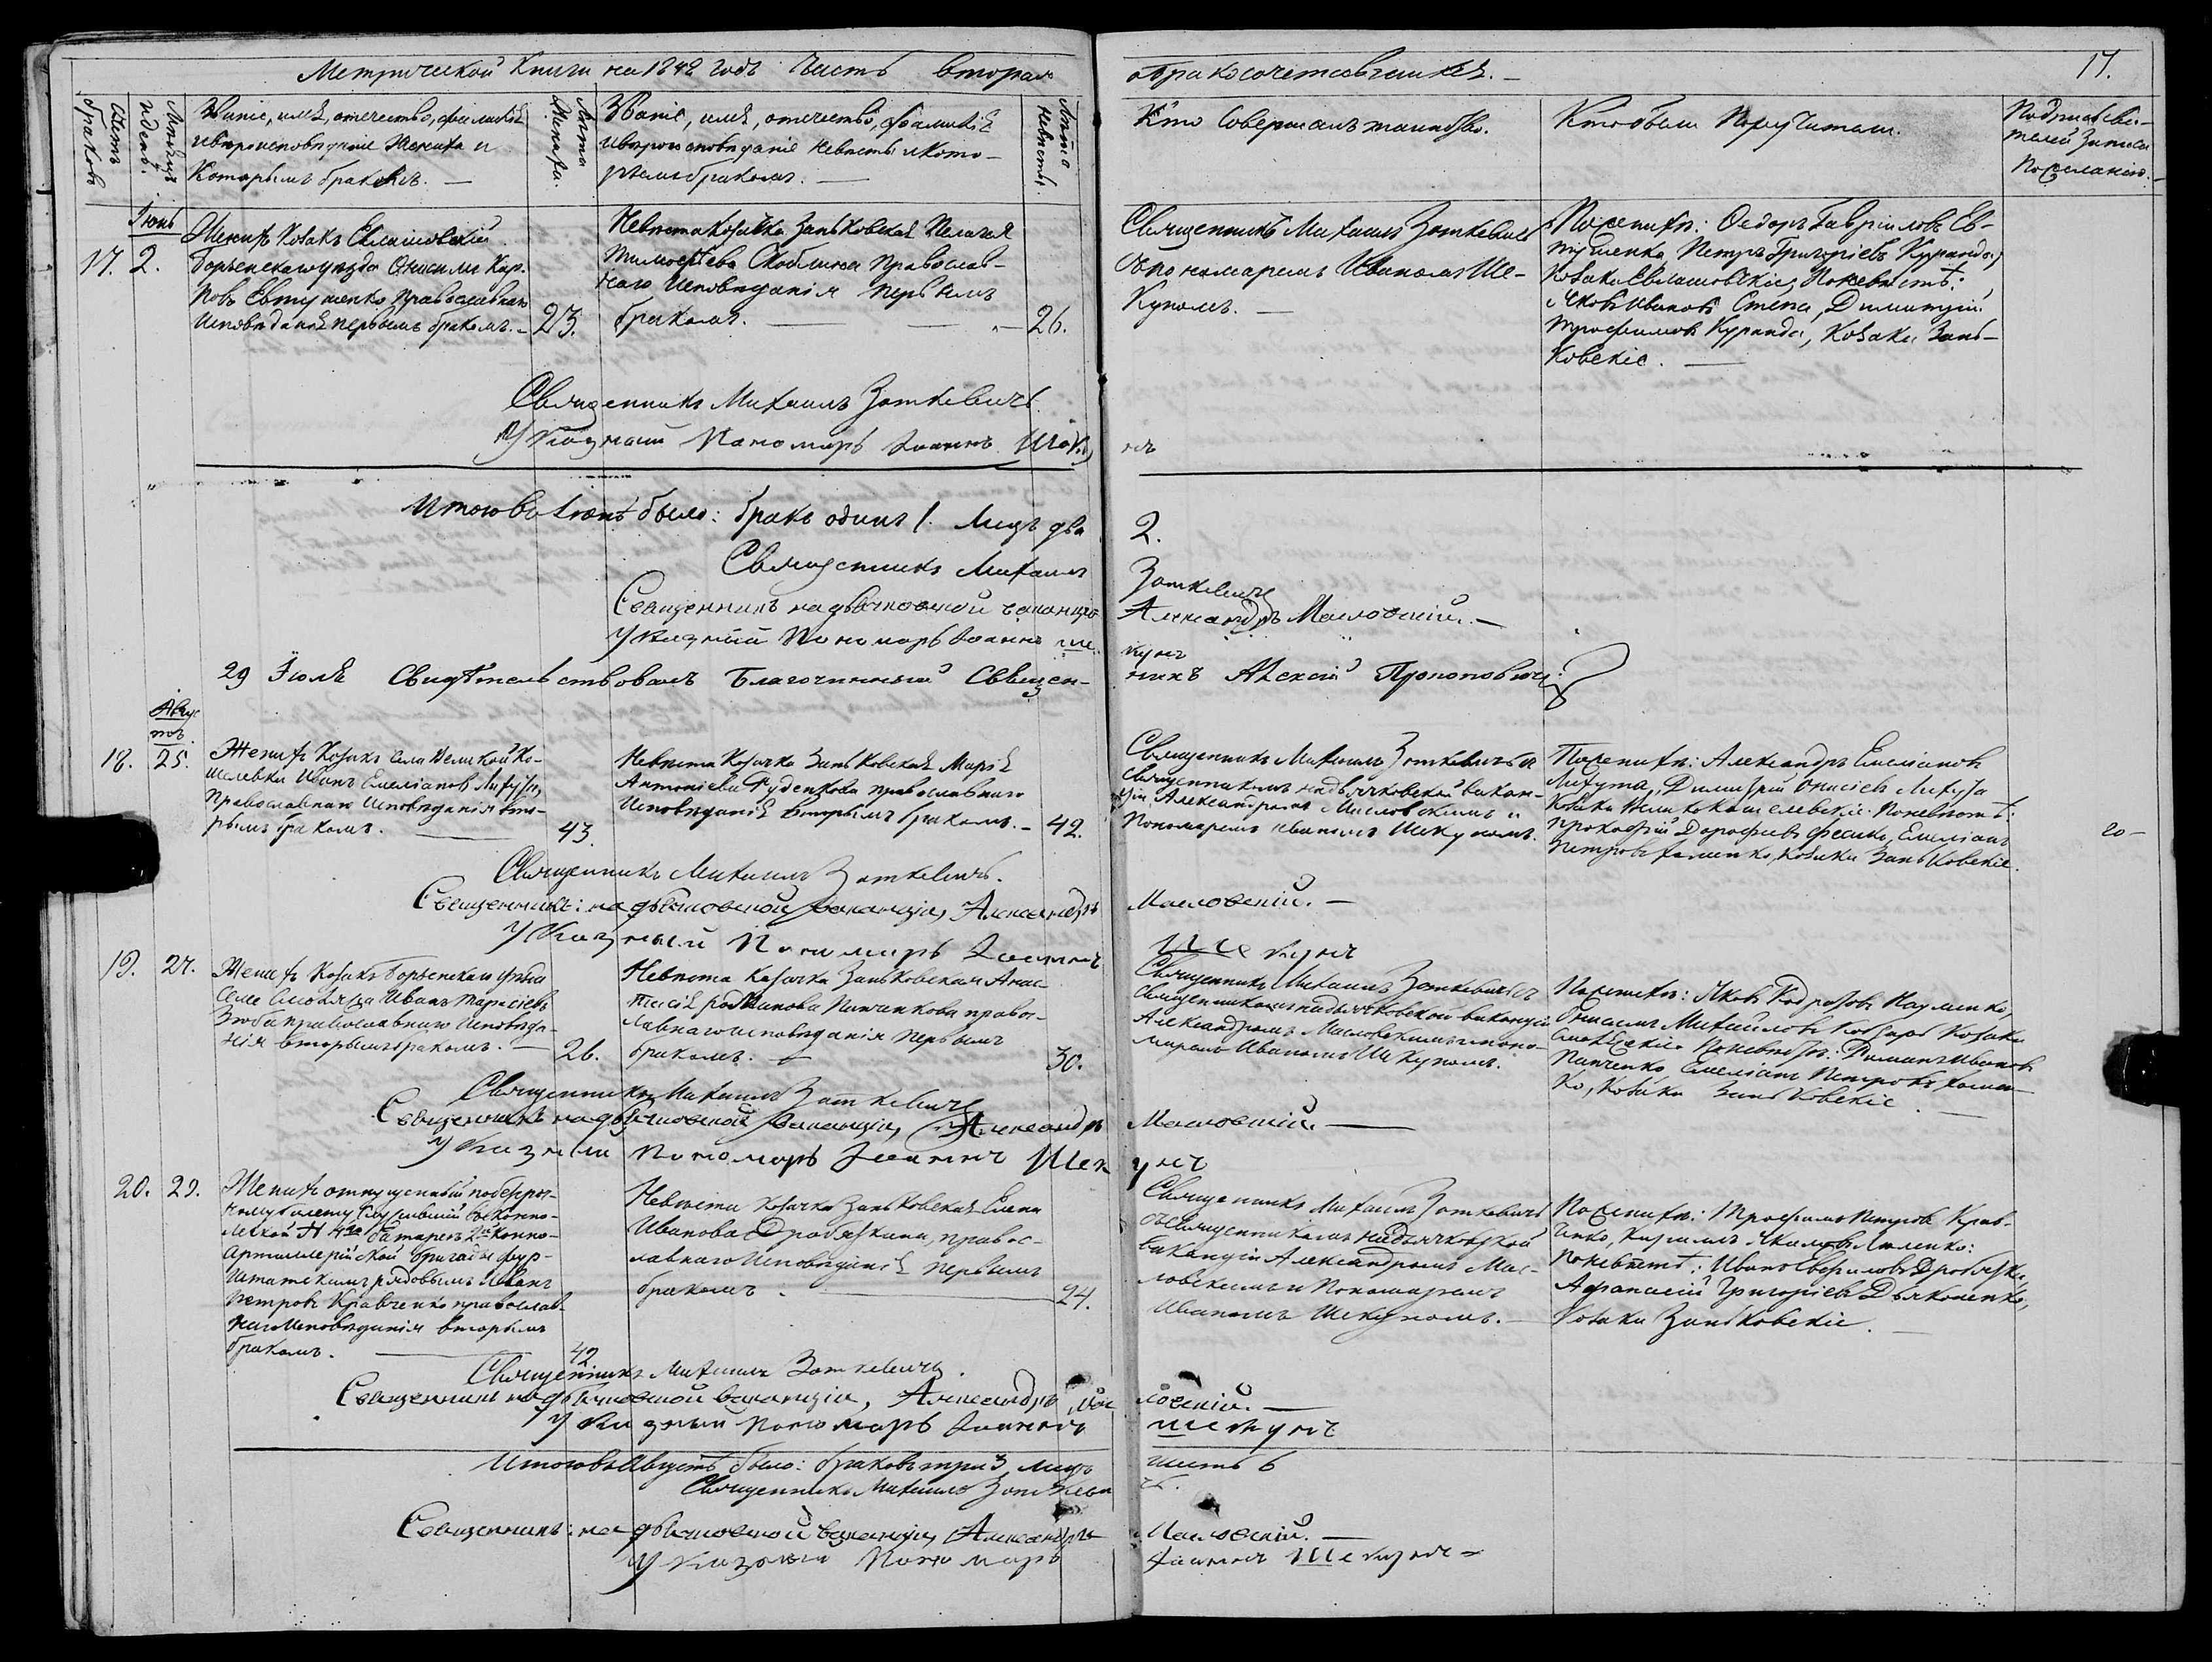 Метрической Книги на 1848 годъ Часть вторая
о бракосочетавшихся.
17.
Счетъ браковъ
Мѣсяцъ и день.
Званіе, имя, отечество, фамилія
и вѣроисповѣданіе Жениха и
Которымъ бракомъ.
Лѣта Жениха.
Званіе, имя, отечество, Фамилія
и вѣроисповѣданіе Невѣсты и Кото-
рымъ бракомъ.
Лѣта Невѣсты.
Кто Совершалъ таинство.
Кто были Поручители.
Подпись сви-
телей Записи
По желанію.
Іюнь
17. 2.
Женихъ Козакъ
Борзенскаго уѣзда Онисимъ Кар-
повъ Евтушенко Православнаго
Исповѣданія первымъ бракомъ.
23.
Невѣста Козачка Заньковская Пелагея
Тимофѣева Скоблика Православ-
наго Исповѣданія первымъ
бракомъ.
26.
Священникъ Михаилъ Зоткевичъ
съ пономаремъ Иваномъ Ше-
куномъ.
По женихѣ: Ѳедоръ Гавріиловъ Ев-
тушенко, Петръ Григоріевъ Куранда,
Козаки По невѣстѣ:
Яковъ Ивановъ Степа, Димитрій
Трофимовъ Куранда, Козаки Зань-
ковскіе.
Священникъ Михаилъ Зоткевичъ.
Указный Пономарь Іоаннъ Шеку
нъ
Итого въ Іюнѣ было: бракъ одинъ 1. Лицъ два
2.
Священникъ Михаилъ
Зоткевичъ
Священникъ на дьячковской ваканціи
Александръ Масловскій.
Указный Пономарь Іоаннъ Ше
кунъ
29 Іюля Свидѣтельствовалъ Благочинный Священ-
никъ Алексій Прокоповичъ
Авгу
стъ
18. 25.
Женихъ Козакъ села Великой Ко-
шелевки Иванъ Емеліановъ Лихута,
Православнаго Исповѣданія вто-
рымъ бракомъ.
43.
Невѣста Козачка Заньковская Марія
Антоніева Руденкова православнаго
Исповѣданія вторымъ бракомъ.
42.
Священникъ Михаилъ Зоткевичъ съ
священникомъ на дьячковской вакан-
ціи Александромъ Масловскимъ и
Пономаремъ Иваномъ Шекуномъ.
По женихѣ: Александръ Емеліановъ
Лихута, Димитрій Онисіевъ Лихута
Козаки Великокошелевскіе. По невѣстѣ:
Прокофій Дорофіевъ Фесикъ, Емеліанъ
Петровъ Хоменко, Козаки Заньковскіе.
20
Священникъ Михаилъ Зоткевичъ.
Священникъ: на дьячковской ваканціи, Александръ
Масловскій.
Указный Пономарь Іоаннъ
Шекунъ
19. 27.
Женихъ Козакъ Борзенскаго уѣзда
Села Смоляжа Иванъ Тарасіевъ
Зюба православнаго Исповѣда-
нія вторымъ бракомъ.
26.
Невѣста Козачка Заньковская Анас-
тасія Романова Пинчикова правос-
лавнаго исповѣданія первымъ
бракомъ.
30.
Священникъ Михаилъ Зоткевичъ съ
Священникомъ на дьячковской ваканціи
Александромъ Масловскимъ и поно-
маремъ Иваномъ Шекуномъ.
По женихѣ: Яковъ Науменко,
Онисимъ Михайловъ Козаки
По невѣстѣ: Романъ Ивановъ
Пинченко, Емеліанъ Петровъ Хомен-
ко, Козаки Заньковскіе.
Священникъ Михаилъ Зоткевичъ
Священникъ на дьячковской ваканціи, Александръ
Масловскій.
Указный Пономарь Іоаннъ Шек
унъ
20. 29.
Женихъ отпущенный по безсроч-
ному билету служившій въ конно-
легкой № 4го батареѣ 2й конно-
артиллерійской бригады фур-
штатскимъ рядовымъ Иванъ
Петровъ Кравченко православ-
наго Исповѣданія вторымъ
бракомъ.
42.
Невѣста Козачка Заньковская Елена
Иванова Дробязкина, правос-
лавнаго Исповѣданія первымъ
бракомъ.
24.
Священникъ Михаилъ Зоткевичъ
съ Священникомъ на дьячковской
ваканціи Александромъ Мас-
ловскимъ и Пономаремъ
Иваномъ Шекуномъ.
По женихѣ: Трофимъ Петровъ Крав-
ченко, Кирилъ Якимовъ
По невѣстѣ: Иванъ Дробязка,
Афанасій Григоріевъ Дьяконенко,
Козаки Заньковскіе.
Священникъ Михаилъ Зоткевичъ.
Священникъ на дьячковской ваканціи, Александръ Мас
ловскій.
Указный Пономарь Іоаннъ
Шекунъ
Итого въ Августѣ было: браковъ три 3, лицъ
шесть 6
Священникъ Михаилъ Зоткеви
чъ.
Священникъ: на дьячковской ваканціи, Александръ
Масловскій.
Указный Пономарь
Іоаннъ Шекунъ